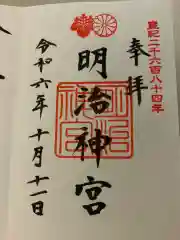 皇紀二千六百八十四年
奉拝
明治神宮
令和六年十月十一日